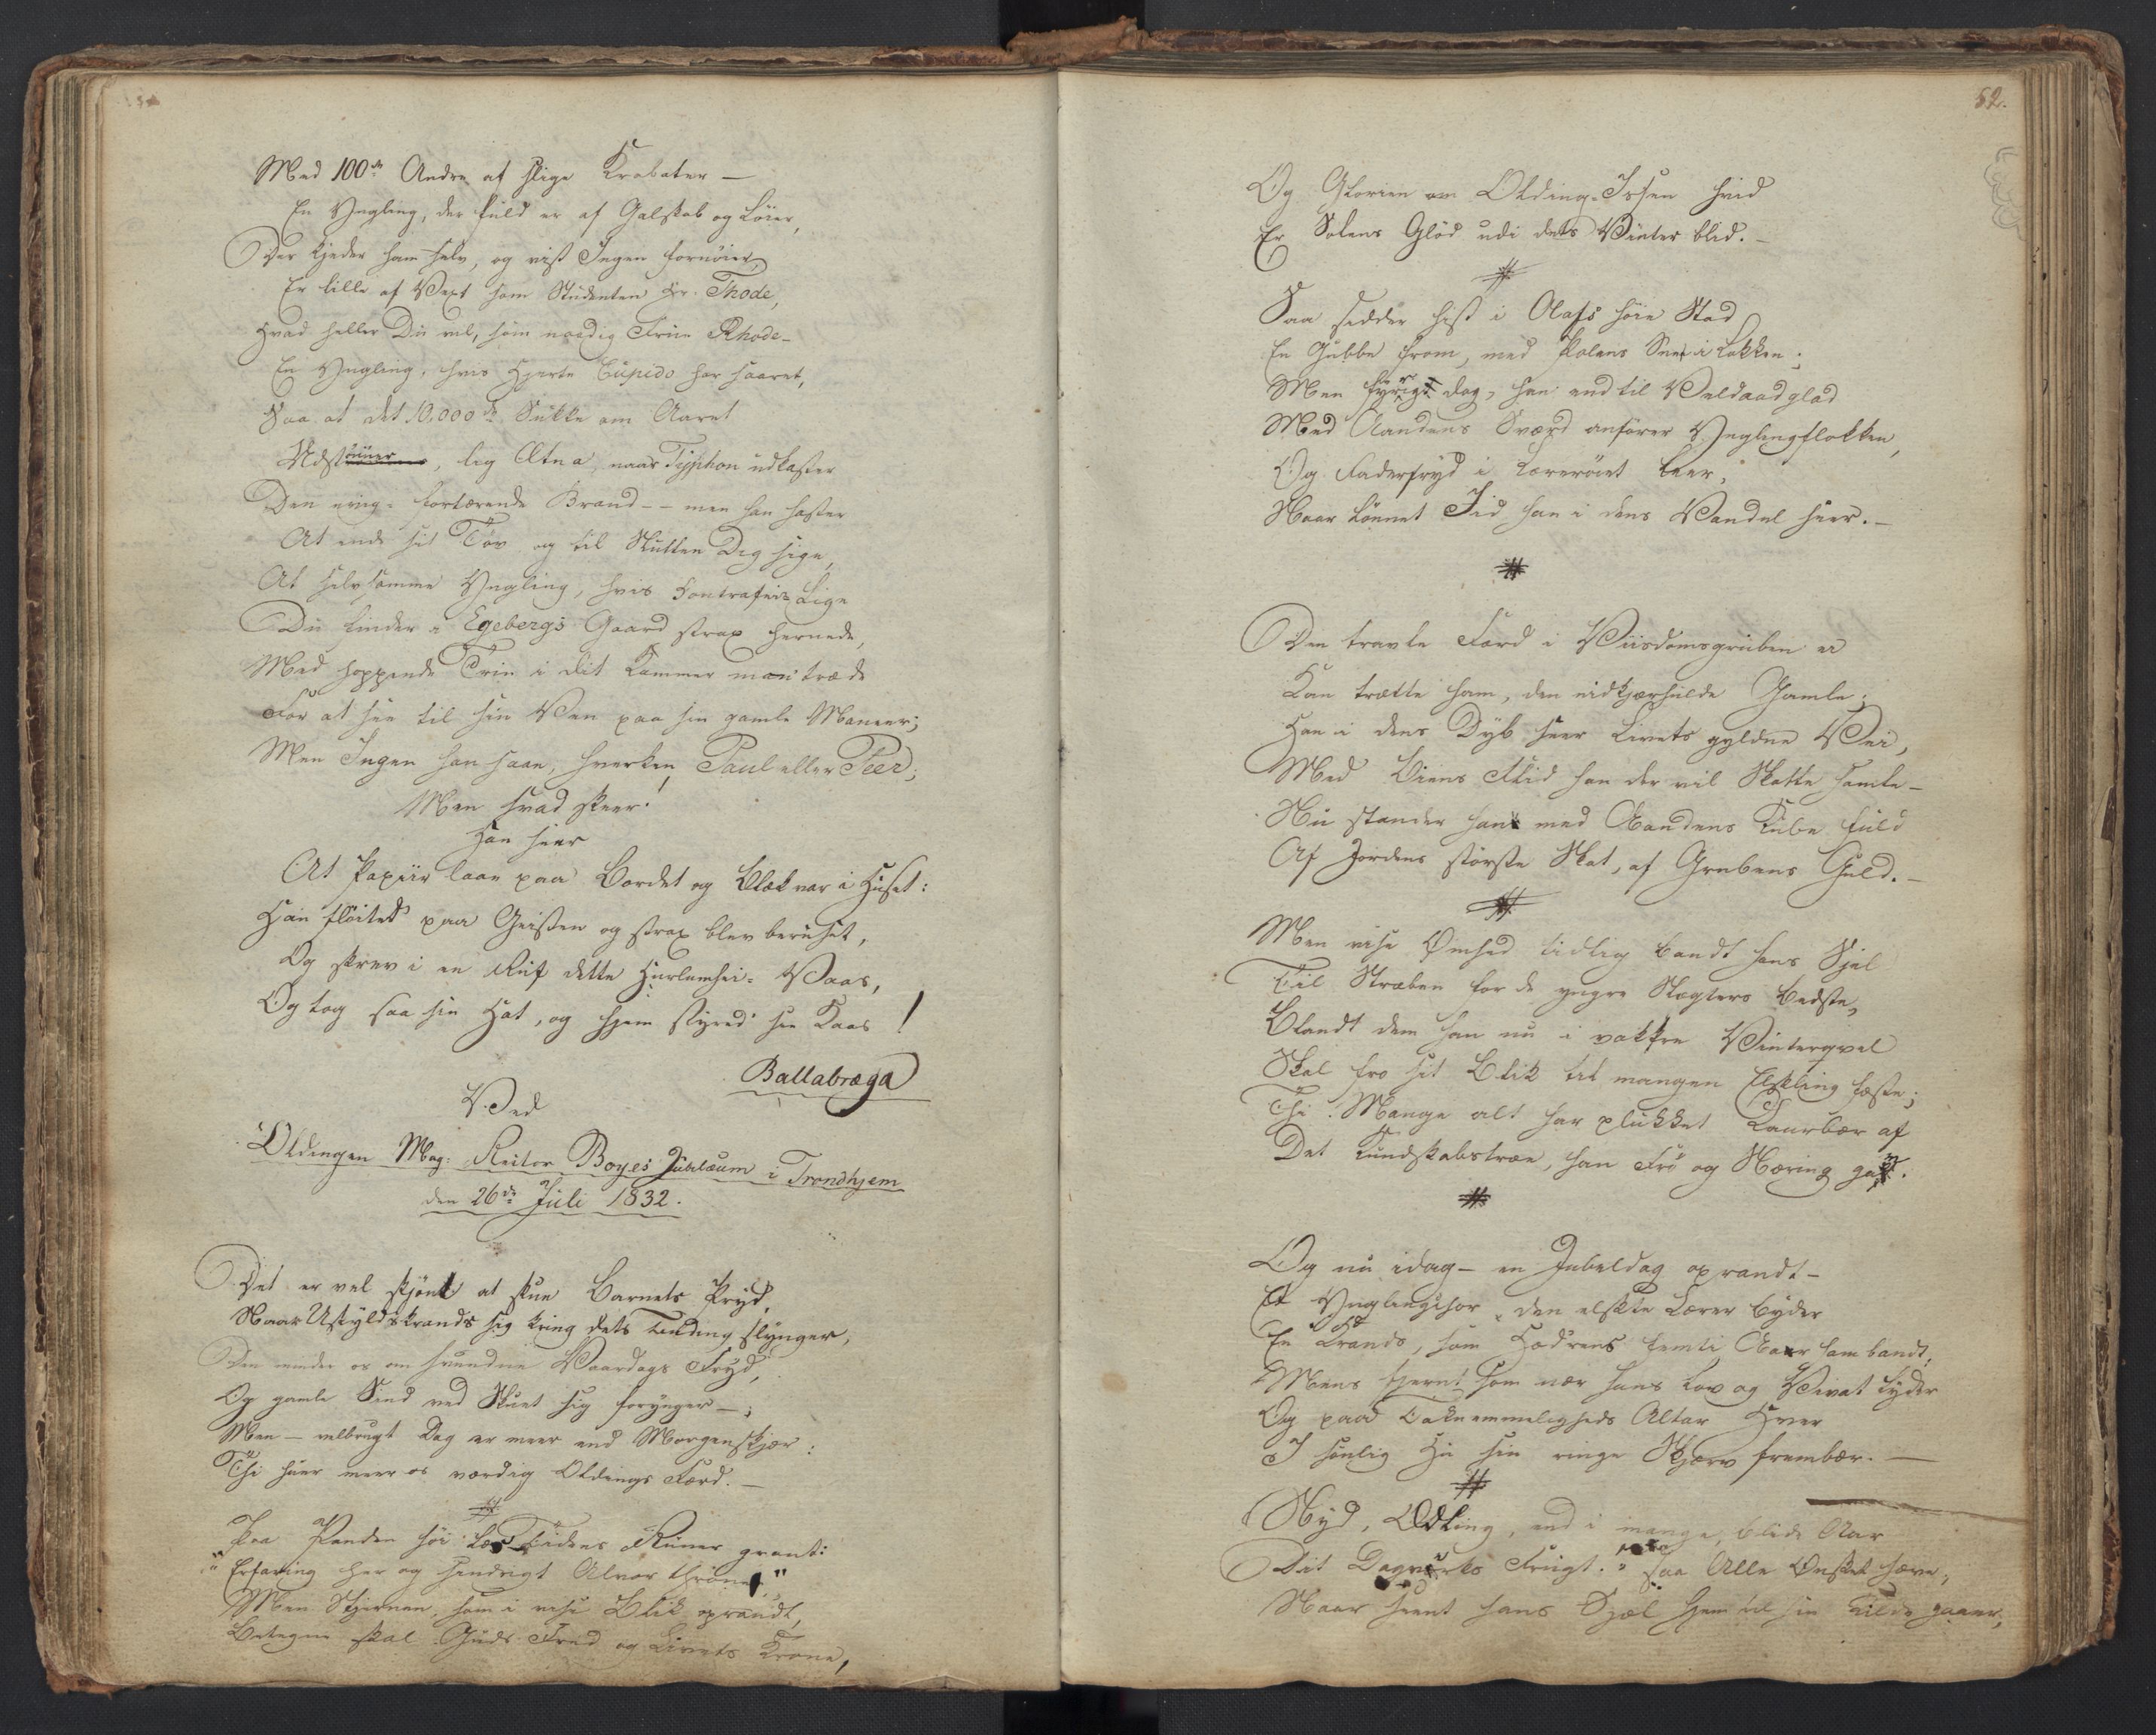 Med 100de Andre af slige Krabater —
En Yngling, der fuld er af Galskab og Løier,
Der kjeder ham selv, og vist Ingen fornøier,
Er lille af Vext som Studenten Hr. Thode,
Hvad heller Du vil, som nordig Frue Rhode –
En Yngling, hvis Hjerte Cupido har saaret,
Saa at det 10,000de Sukke om Aaret
Udstønner, lig Ætna, naar Typhon udkaster
Den evig-fortærende Brand – – men han haster
At ende sit Tøv og til Slutten Dig sige,
At selvsamme Yngling, hvis Contrafeis Lige
Du finder i Egebergs Gaard strax hernede,
Med hoppende Trin i dit Kammer mon træde
For at see til sin Ven paa sin gamle Maneer;
Men Ingen han saae, hverken Paul eller Peer;
Men hvad skeer!
Han seer
At Papiir laae paa Bordet og Blæk var i Huset:
Han fløited paa Geisten og strax blev beruset,
Og skrev i en Ruf dette Hurlumhei-Vaas,
Og tog saa sin Hat, og hjem styred' sin Kaas!
Ballabræga
Ved
Oldingen Mag: Rector Boyes Jubilæum i Trondhjem
den 26de Juli 1832.
Det er vel skjønt at skue Barnets Pryd,
Naar Uskyldskrands sig kring dets Tinding slynger,
Den minder os om svundne Vaardags Fryd,
Og gamle Sind ved Skuet sig forynger –;
Men – velbrugt Dag er meer end Morgenskjær:
Thi huer meer os værdig Oldings Færd. –
#
Paa Panden høi læs Tidens Runer grant:
"Erfaring her og hendrigt Alvor throne,"
Men Stjernen, som i vise Blik oprandt,
Betegne skal Guds Fred og Livets Krone,
52.
Og Glorien om Olding-Issen hvid
Er Solens Glød udi dets Vinter blid. –
#
Saa sidder hist i Olafs høie Stad
En Gubbe from, med Polens Snee i Lokken;
Men fyrig dog, han end til Veldaad glad
Med Aandens Sværd anfører Ynglingflokken,
Og Faderfryd i Lærerøiet leer,
Naar lønnet Iid han i dens Vandel seer. –
#
Den travle Færd i Viisdomsgruben ei
Kan trætte ham, den nidkjærfulde Gamle;
Han i dens Dyb seer Livets gyldne Vei,
Med Biens Flid han der vil Skatte samle –
Nu stander han med Aandens Kube fuld
Af Jordens største Skat, af Grubens Guld. –
#
Men vise Ømhed tidlig bandt hans Sjel
Til Stræben for de yngre Slægters Bedste,
Blandt dem han nu i vakkre Vinterqvel
Skal fro sit Blik til mangen Elskling fæste;
Thi Mange alt har plukket Laurbær af
Det Kundskabstræe, han Frø og Næring gav.
#
Og nu idag – en Jubeldag oprandt –
Et Ynglingchor den elskte Lærer byder
En Krands, som Hædrens femti Aar sambandt,
Mens fjernt som nær hans Lov og Vivat lyder
Og paa Taknemmeligheds Altar Hver
I sønlig Hu sin ringe Skjærv frembær. —
#
"Nyd, Ædling, end i mange, blide Aar
Dit Dagværks Frugt." saa Alle Ønsket hæve,
Naar seent hans Sjæl hjem til sin Kilde gaaer,